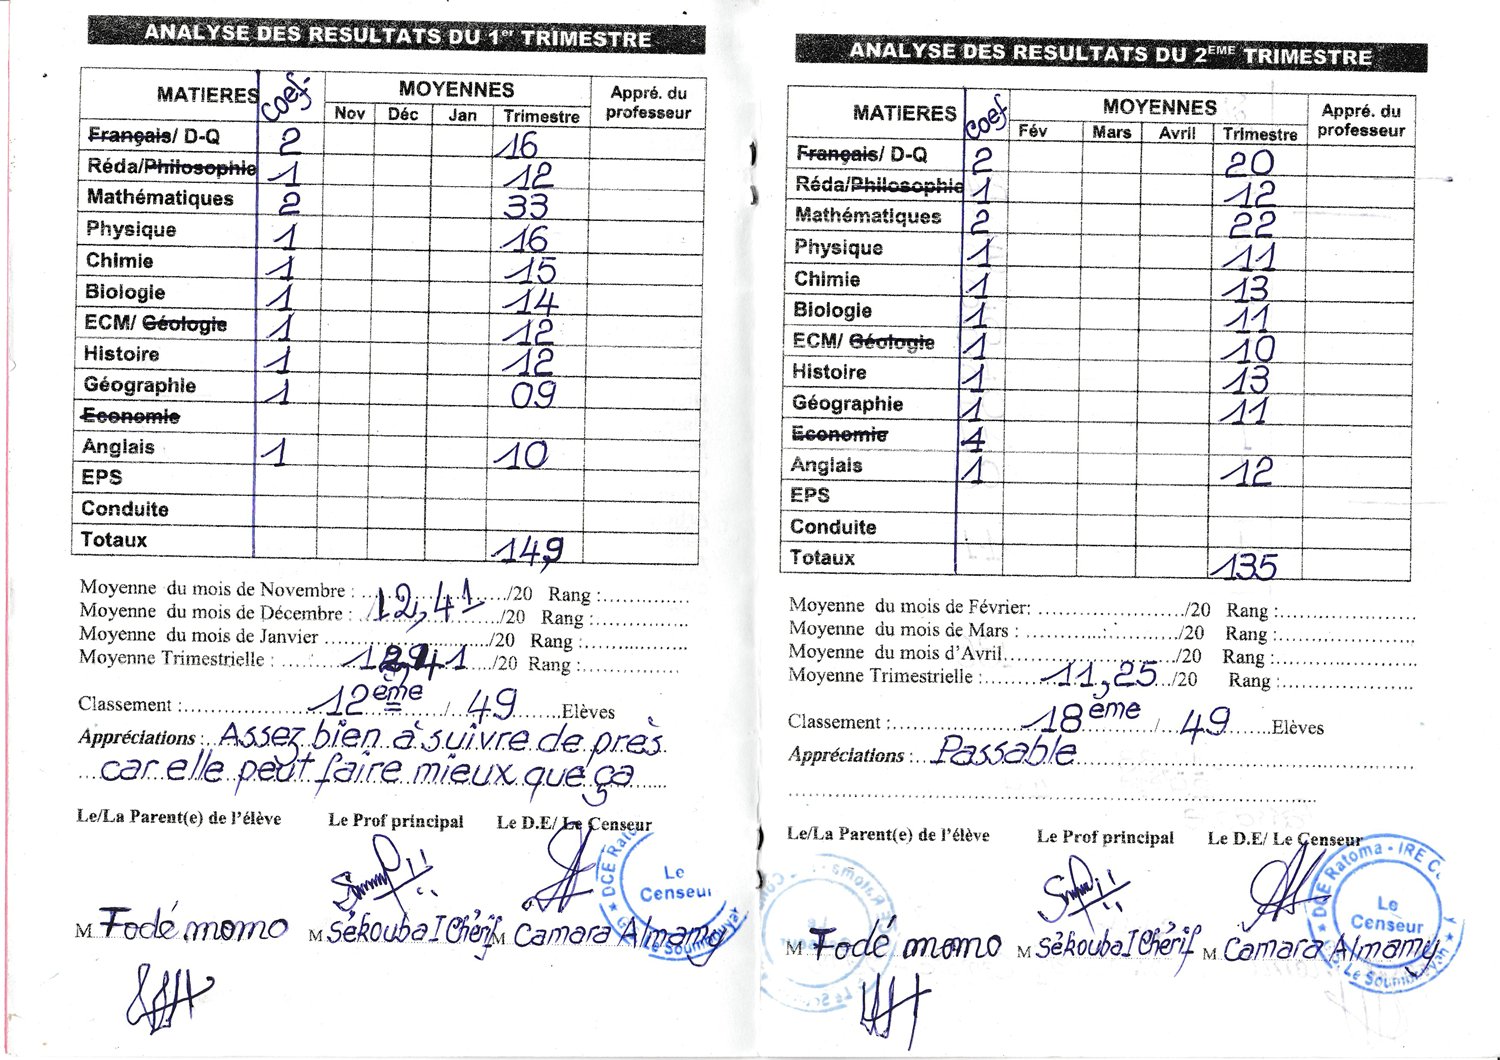 ANALYSE DES RESULTATS DU 1er TRIMESTRE
MATIERES Coef. MOYENNES Appré. du professeur
Nov Déc Jan Trimestre
Français/ D-Q 2 16
Réda/Philosophie 1 12
Mathématiques 2 33
Physique 1 16
Chimie 1 15
Biologie 1 14
ECM/ Géologie 1 12
Histoire 1 12
Géographie 1 09
Economie
Anglais 1 10
EPS
Conduite
Totaux 149
Moyenne du mois de Novembre : ................/20 Rang :................
Moyenne du mois de Décembre : 12,41 /20 Rang :................
Moyenne du mois de Janvier ................/20 Rang :................
Moyenne Trimestrielle : 12,41 /20 Rang :................
Classement : 12ème / 49 Elèves
Appréciations : Assez bien à suivre de près
car elle peut faire mieux que ça
Le/La Parent(e) de l'élève Le Prof principal Le D.E/ Le Censeur
DCE Ratoma
Le Censeur
M Fodé momo M Sékouba I Chérif M Camara Almamy
ANALYSE DES RESULTATS DU 2EME TRIMESTRE
MATIERES Coef MOYENNES Appré. du professeur
Fév Mars Avril Trimestre
Français/ D-Q 2 20
Réda/Philosophie 1 12
Mathématiques 2 22
Physique 1 11
Chimie 1 13
Biologie 1 11
ECM/ Géologie 1 10
Histoire 1 13
Géographie 1 11
Economie 1
Anglais 1 12
EPS
Conduite
Totaux 135
Moyenne du mois de Février: ................/20 Rang :................
Moyenne du mois de Mars : ................/20 Rang :................
Moyenne du mois d'Avril................/20 Rang :................
Moyenne Trimestrielle : 11,25 /20 Rang :................
Classement : 18ème / 49 Elèves
Appréciations : Passable
Le/La Parent(e) de l'élève Le Prof principal Le D.E/ Le Censeur
DCE Ratoma - IRE
Le Censeur
M Fodé momo M Sékouba I Chérif M Camara Almamy